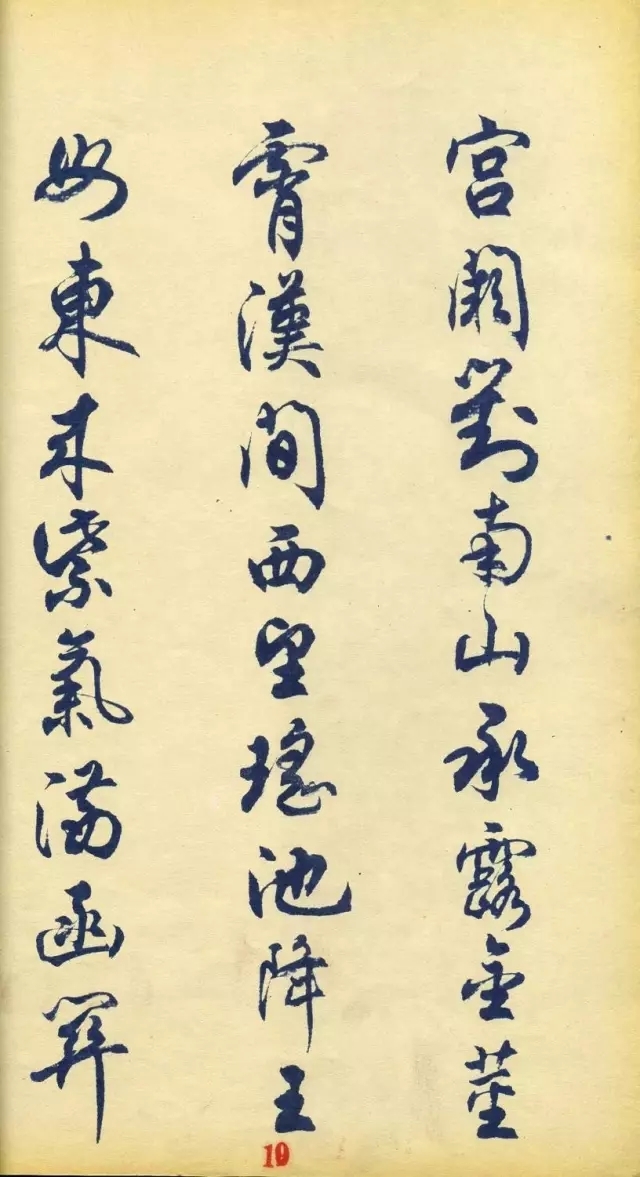 宫阙對南山承露金莖
霄漢間西望瑤池降王
母東来紫氣滿函関
19